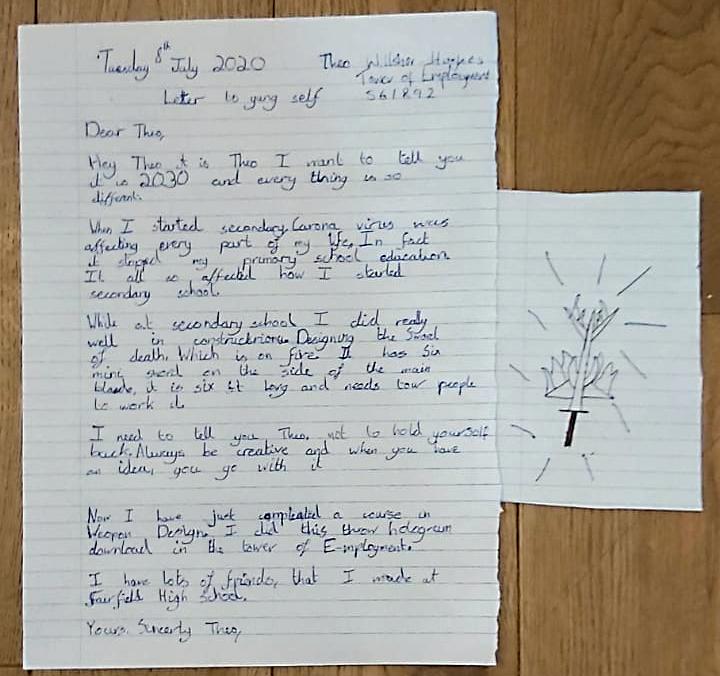 Tuesday 8th July 2020
Theo Willsher Hughes
Tower of Employment
561892
Letter to yung self
Dear Theo,
Hey Theo it is Theo I want to tell you
it is 2030 and every thing is so
different.
When I started secondary, Carona virus was
affecting every part of my life, In fact
it stoped my primary school education.
It all so affected how I started
secondary school.
While at secondary school I did really
well in constructrion. Designing the Sword
of death, Which is on fire. It has six
mini sword on the side of the main
blade, it is six ft long and needs tow people
to work it.
I need to tell you Theo, not to hold yourself
back. Always be creative and when you have
an idea, you go with it
Now I have just compleated a course in
Weapon Design. I did this throw hologram
download in the tower of E-mployment.
I have lots of friends, that I made at
Fairfield High School.
Yours. Sincerly Theo,